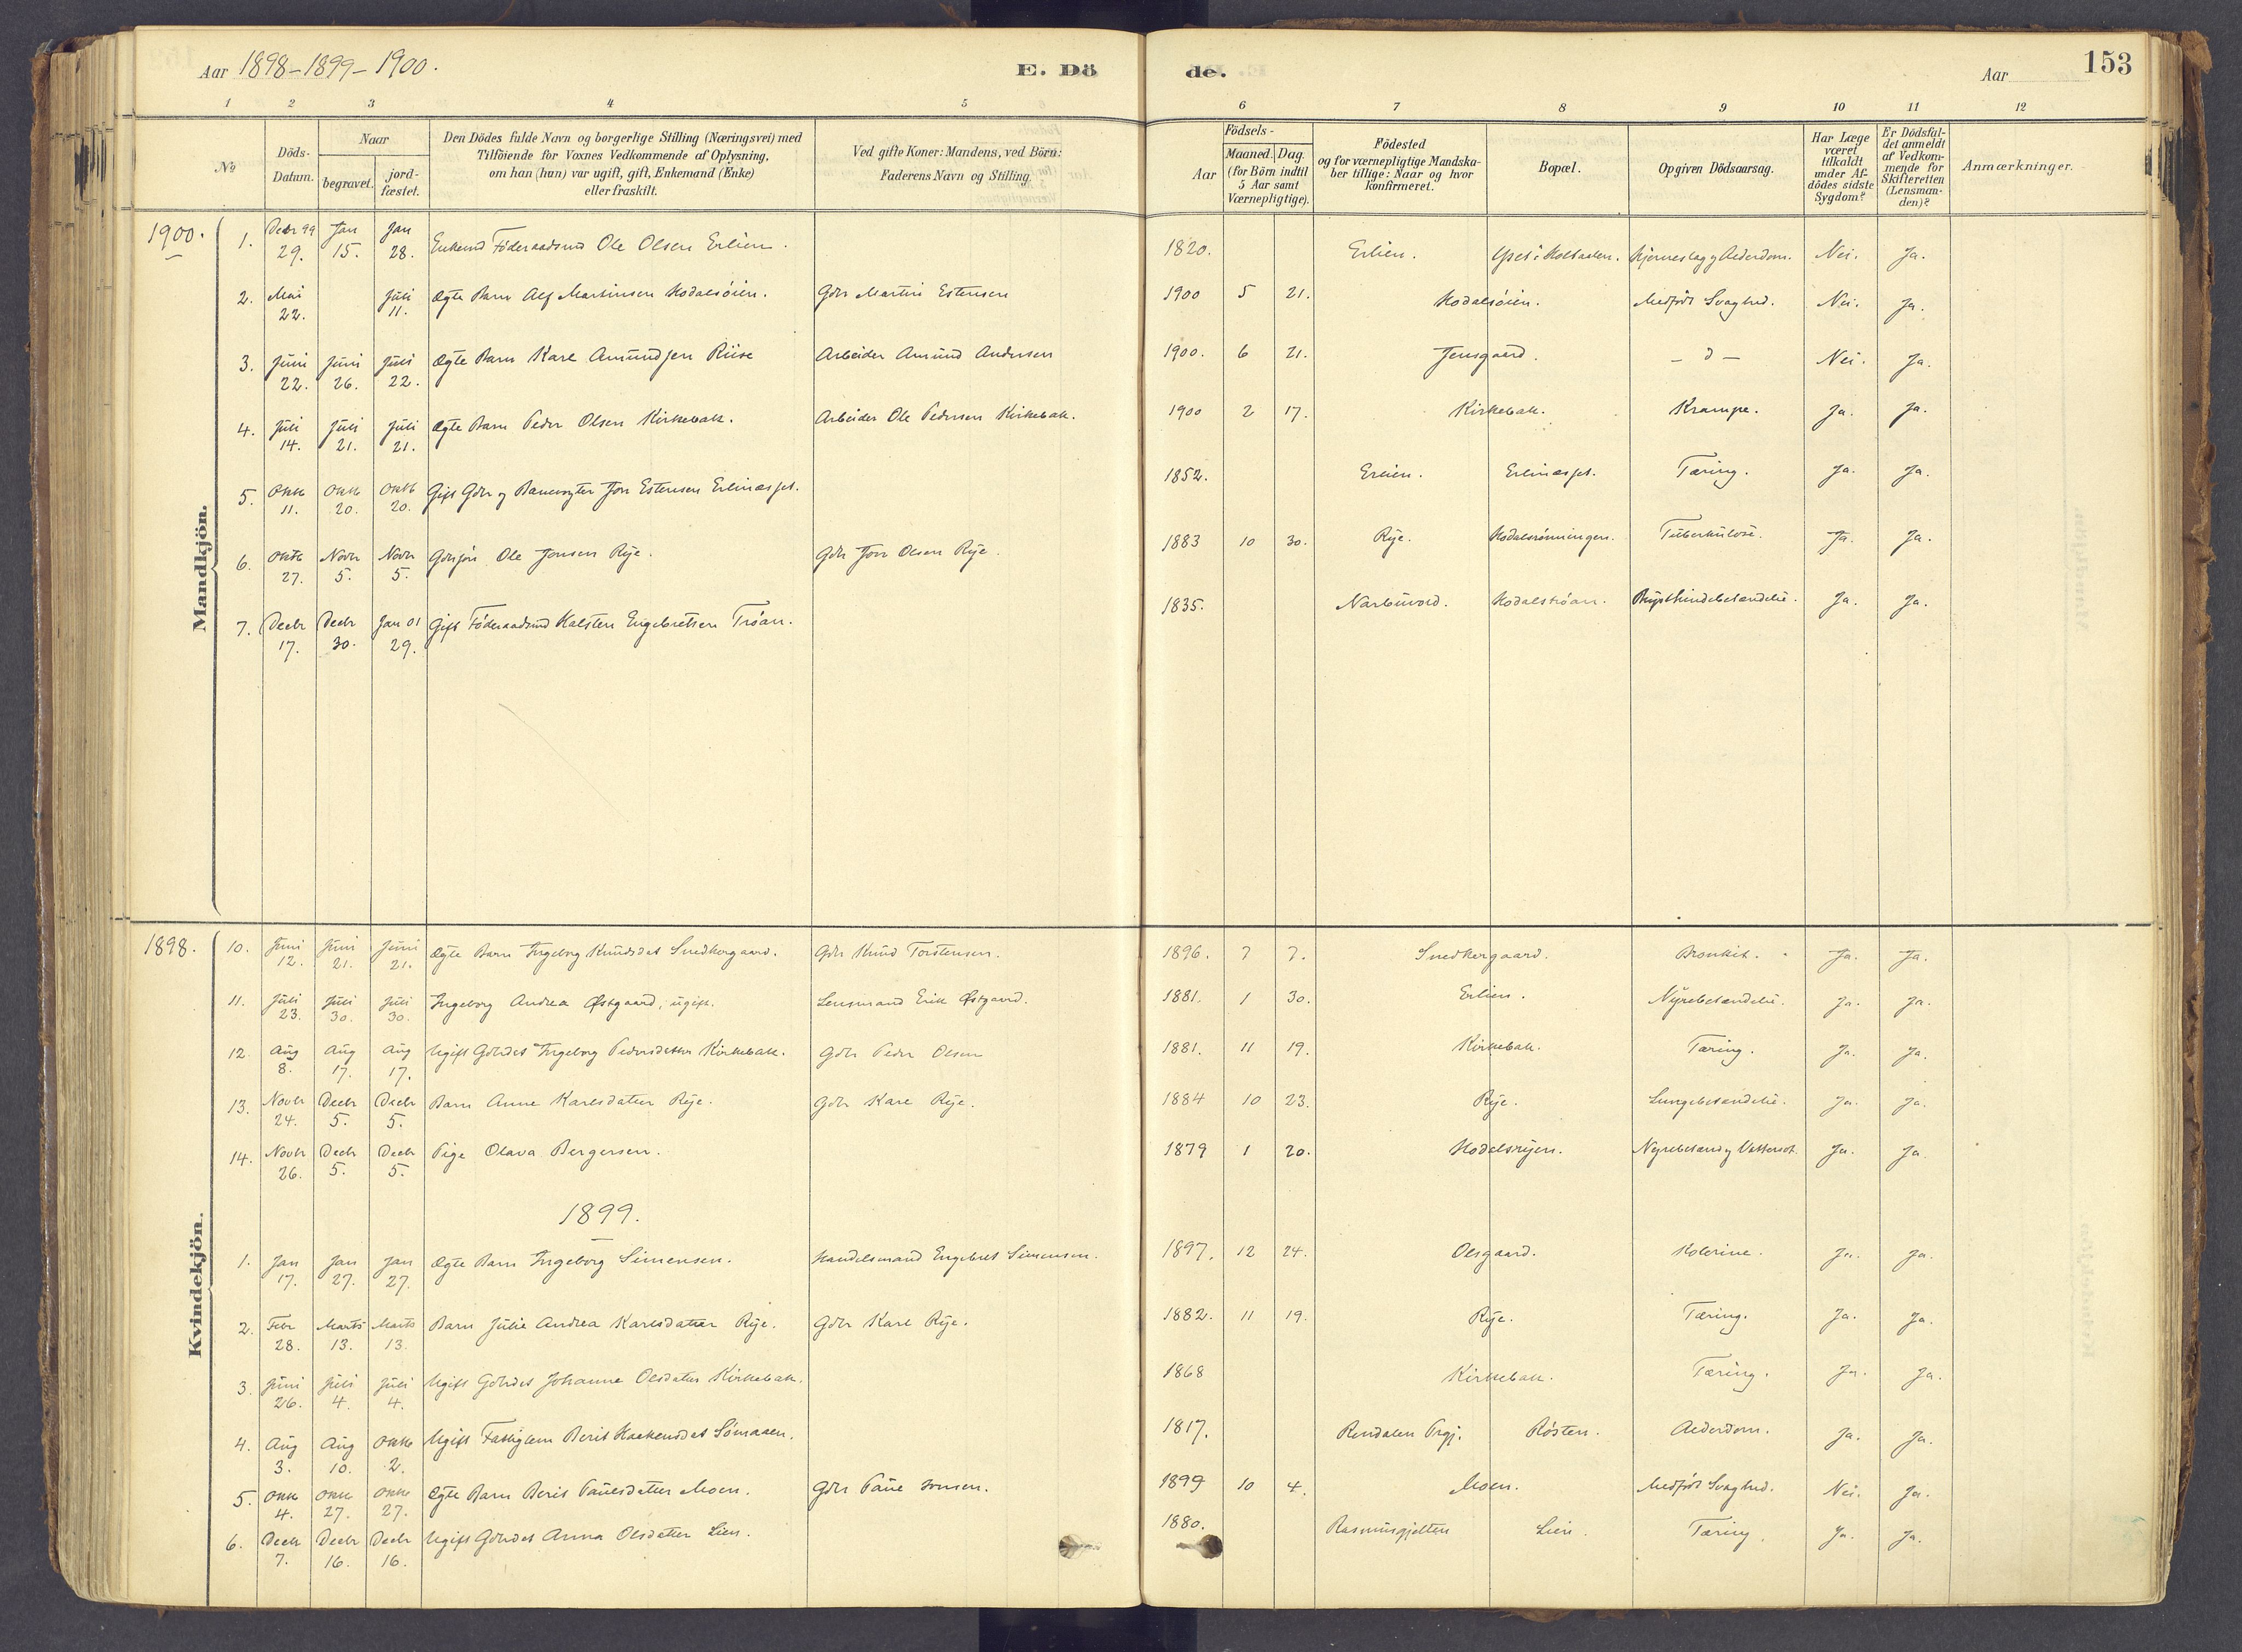 Aar 1898-1899-1900.
E. Dö
de.
Aar
153
1 2 3 4 5 6 7 8 9 10 11 12
No
Döds-Datum.
Naar
begravet.
jord-fæstet.
Den Dödes fulde Navn og borgerlige Stilling (Næringsvei) med
Tilföiende for Voxnes Vedkommende af Oplysning,
om han (hun) var ugift, gift, Enkemand (Enke)
eller fraskilt.
Ved gifte Koner: Mandens, ved Börn:
Faderens Navn og Stilling.
Aar
Födsels-
Maaned. Dag.
(for Börn indtil
5 Aar samt
Værnepligtige).
Födested
og for værnepligtige Mandska-
ber tillige: Naar og hvor
konfirmeret.
Bopæl.
Opgiven Dödsaarsag.
Har Læge
været
tilkaldt
under Af-
dödes sidste
Sygdom?
Er Dödsfal-
det anmeldt
af Vedkom-
mende for
Skifteretten
(Lensman-
den)?
Anmærkninger.
Mandkjön.
1900.
1. Decbr 99 29. Jan 15. Jan 28. Enkemd Föderaadsmd Ole Olsen Erlien. 1820. Erlien. Nei. Ja.
2. Mai 22. Juli 11. Ægte Barn Alf Martinsen Hodalsöien. Gdbr Martin Estensen 1900 5 21. Hodalsöien. Medfödt Svaghed. Nei. Ja.
3. Juni 22. Juni 26. Juli 22. Ægte Barn Karl Amundsen Riise Arbeider Amund Andersen 1900. 6 21. Jensgaard. - d - Nei. Ja.
4. Juli 14. Juli 21. Juli 21. Ægte Barn Peder Olsen Kirkebak. Arbeider Ole Pedersen Kirkebak. 1900 2 17. Kirkebak. Krampe. Ja. Ja.
5. Oktb 11. Oktb 20. Oktb 20. Gift Gdbr og Banevogter Jon Estensen 1852. Erlien. Tæring. Ja. Ja.
6. Oktb 27. Novbr 5. Novbr 5. Ole Jonsen Rye. Gdbr Jon Olsen Rye. 1883 10 30. Rye. Hodalsrönningen. Tuberkulose. Ja. Ja.
7. Decbr 17. Decbr 30. Jan 01 29. Gift Föderaadsmd Halsten Engebretsen Tröan. 1835. Narbuvold. Hodalströan. Brysthindebetændelse. Ja. Ja.
Kvindekjön.
1898.
10. Juni 12. Juni 21. Juni 21. Ægte Barn Ingeborg Knudsdat Snedkergaard. Gdbr Knud Torstensen. 1896. 7 7. Snedkergaard. Bronkit. Ja. Ja.
11. Juli 23. Juli 30. Juli 30. Ingeborg Andrea Østgaard, ugift. Lensmand Erik Østgaard. 1881. 1 30. Erlien. Nyrebetændelse. Ja. Ja.
12. Aug 8. Aug 17. Aug 17. Ugift Gdbrdat Ingeborg Pedersdatter Kirkebak. Gdbr Peder Olsen 1881. 11 19. Kirkebak. Tæring. Ja. Ja.
13. Novbr 24. Decbr 5. Decbr 5. Barn Anne Karlsdatter Rye. Gdbr Karl Rye. 1884 10 23. Rye. Lungebetændelse. Ja. Ja.
14. Novbr 26. Decbr 5. Decbr 5. Pige Olava Bergersen. 1879 1 20. Ja. Ja.
1899.
1. Jan 17. Jan 27. Jan 27. Ægte Barn Ingeborg Simensen. Handelsmand Engebret Simensen. 1897. 12 24. Olsgaard. Kolerine. Ja. Ja.
2. Febr 28. Marts 13. Marts 13. Barn Julie Andrea Karlsdatter Rye. Gdbr Karl Rye. 1882. 11 19. Rye. Tæring. Ja. Ja.
3. Juni 26. Juli 4. Juli 4. Ugift Gdbrdat Johanne Olsdatter Kirkebak. 1868 Kirkebak. Tæring. Ja. Ja.
4. Aug 3. Aug 10. Oktb 2. Ugift Fattiglem Berit Haakensdat Sömaaen. 1817. Rendalen Prgj. Røsten. Alderdom. Ja. Ja.
5. Oktb 4. Oktb 27. Oktb 27. Ægte Barn Berit Paulsdatter Moen. Gdbr Paul Jonsen. 1899 10 4. Moen. Medfödt Svaghed. Nei. Ja.
6. Decbr 7. Decbr 16. Decbr 16. Ugift Gdbrdat Anna Olsdatter Lien. 1880. Rasmusgjelten Lien. Tæring. Ja. Ja.